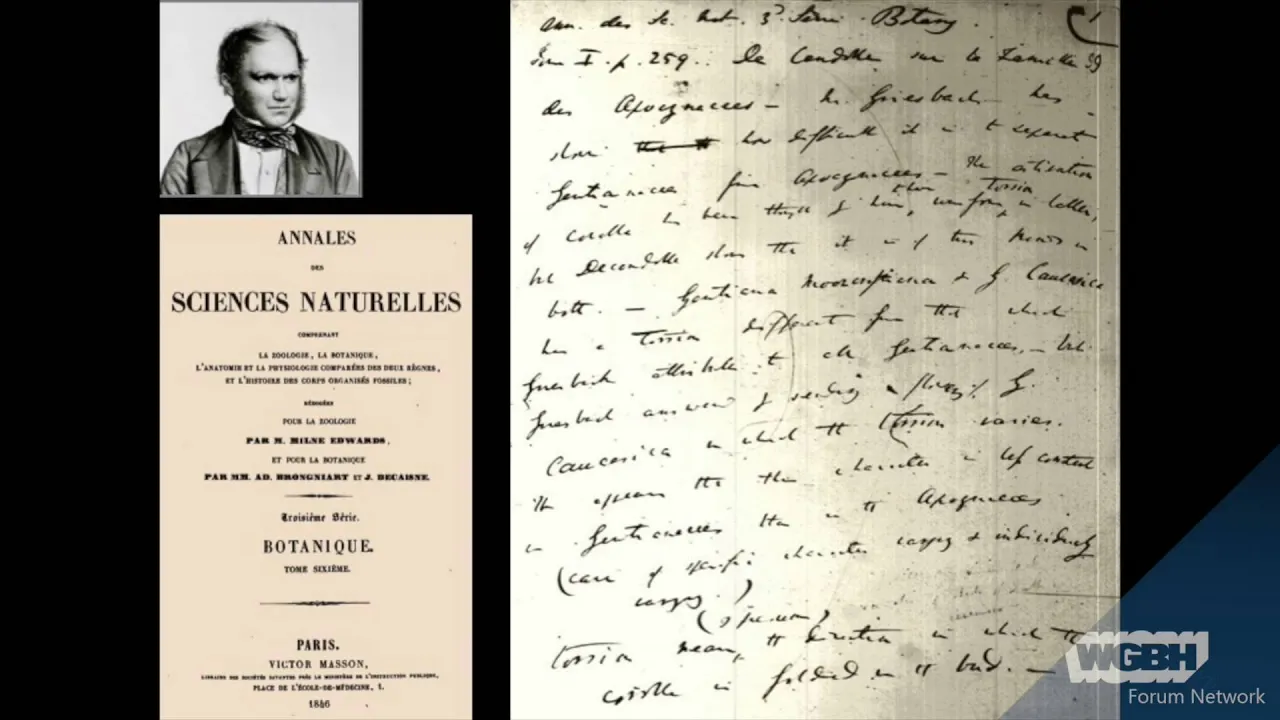 ANNALES
DES
SCIENCES NATURELLES
COMPRENANT
LA ZOOLOGIE, LA BOTANIQUE,
L'ANATOMIE ET LA PHYSIOLOGIE COMPARÉES DES DEUX RÈGNES,
ET L'HISTOIRE DES CORPS ORGANISÉS FOSSILES;
RÉDIGÉES
POUR LA ZOOLOGIE
PAR M. MILNE EDWARDS,
ET POUR LA BOTANIQUE
PAR MM. AD. BRONGNIART ET J. DECAISNE.
Troisième Série.
BOTANIQUE.
TOME SIXIÈME.
PARIS.
VICTOR MASSON,
LIBRAIRE DES SOCIÉTÉS SAVANTES PRÈS LE MINISTÈRE DE L'INSTRUCTION PUBLIQUE,
PLACE DE L'ÉCOLE-DE-MÉDECINE, 1.
1846
Ann. des Sc. Nat. 3d Series. Botany. 1
Tom I. p. 259. De Candolle sur la Famille 39
des Apocynacees — Mr Griesbach has
shown how difficult it is to separate
Gentianaceae from Apocynaceae — The estivation
of corolla has been thought by him, uniform in latter,
but Decandolle shows that it is of two kinds in
both. — Gentiana Moorcroftiana & G. Caucasica
has a torsion different from that which
Griesbach attributes to all Gentianaceae, — but
Griesbach answered by sending a flower of G.
Caucasica in which the torsion varies.
It appears that this character is less constant
in Gentianaceae than in the Apocynaceae
(case of specific character varying & individually
varying.)
torsion means the direction in which the
corolla is folded in the bud. —
WGBH
Forum Network